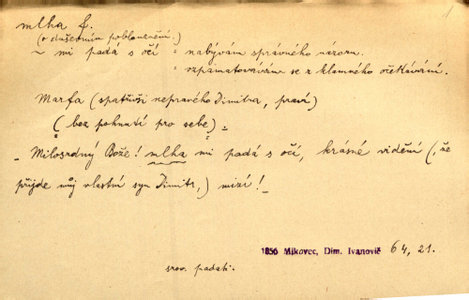 mlha f.
(o duševním poblouznění)
~ mi padá s očí = nabývám správného názoru.
= vzpamatovávám se z klamného očekávání.
Marfa (spatřivši nepravého Dimitra, praví)
(bez pohnutí pro sebe) =
– Milosrdný Bože! mlha mi padá s očí, krásné vidění (, že
přijde můj vlastní syn Dimitr,) mizí! –
1856 Mikovec, Dim. Ivanovič 64, 21.
srov. padati.